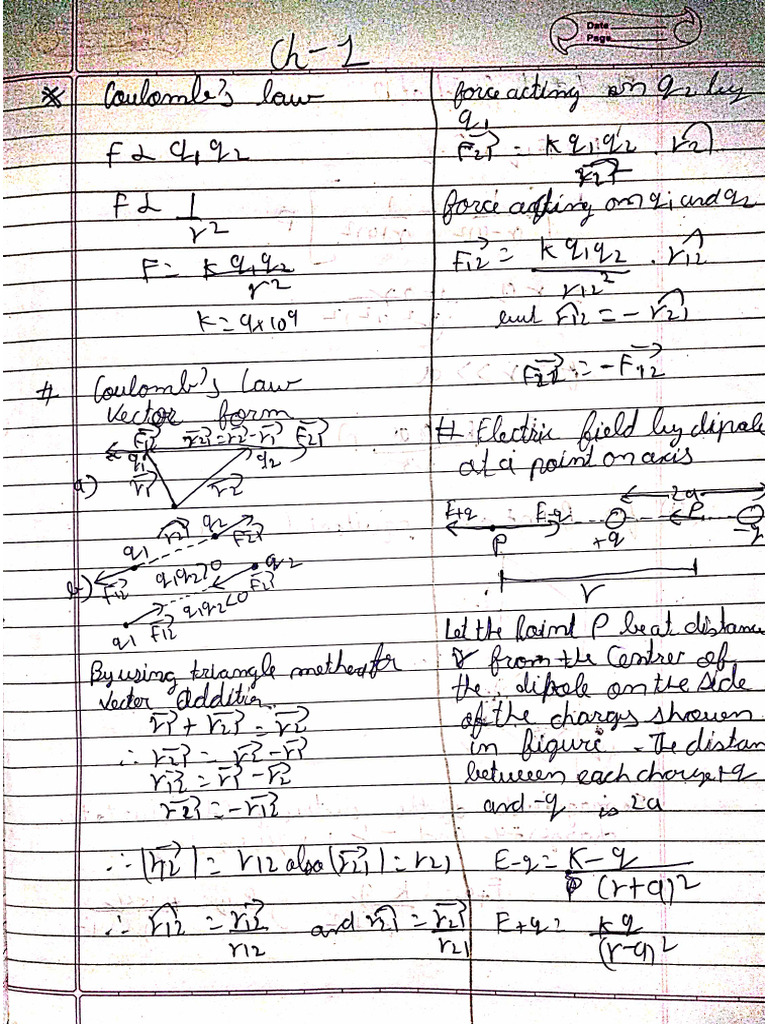 Date
Page
Ch-1
* Coulomb's law
F ∝ q1 q2
F ∝ 1/r²
F = K q1q2/r²
K = 9×10⁹
# Coulomb's Law
vector form
F12→ r21→ = r2→ - r1→ F21→
q1 q2
a) r1→ r2→
r21→ q2 F21→
q1
b) F12→ q1q2>0 q2
F21→
q1q2<0
q1 F12→
By using triangle method for
vector addition
r1→ + r21→ = r2→
∴ r21→ = r2→ - r1→
r12→ = r1→ - r2→
r21→ = -r12→
∴ |r12→| = r12 also |r21→| = r21
∴ r̂12 = r12→/r12 and r̂21 = r21→/r21
force acting on q2 by
q1
F21→ = K q1 q2/r21² . r̂21
force acting on q1 and q2
F12→ = K q1q2/r12² . r̂12
but r̂12 = - r̂21
F21→ = -F12→
# Electric field by dipole
at a point on axis
2a
E+q E-q P
P +q -q
r
Let the point P be at distance
r from the Centrer of
the dipole on the side
of the charges shown
in figure. The distan
between each charge +q
and -q is 2a
E-q = K-q/(r+a)²
E+q = kq/(r-a)²